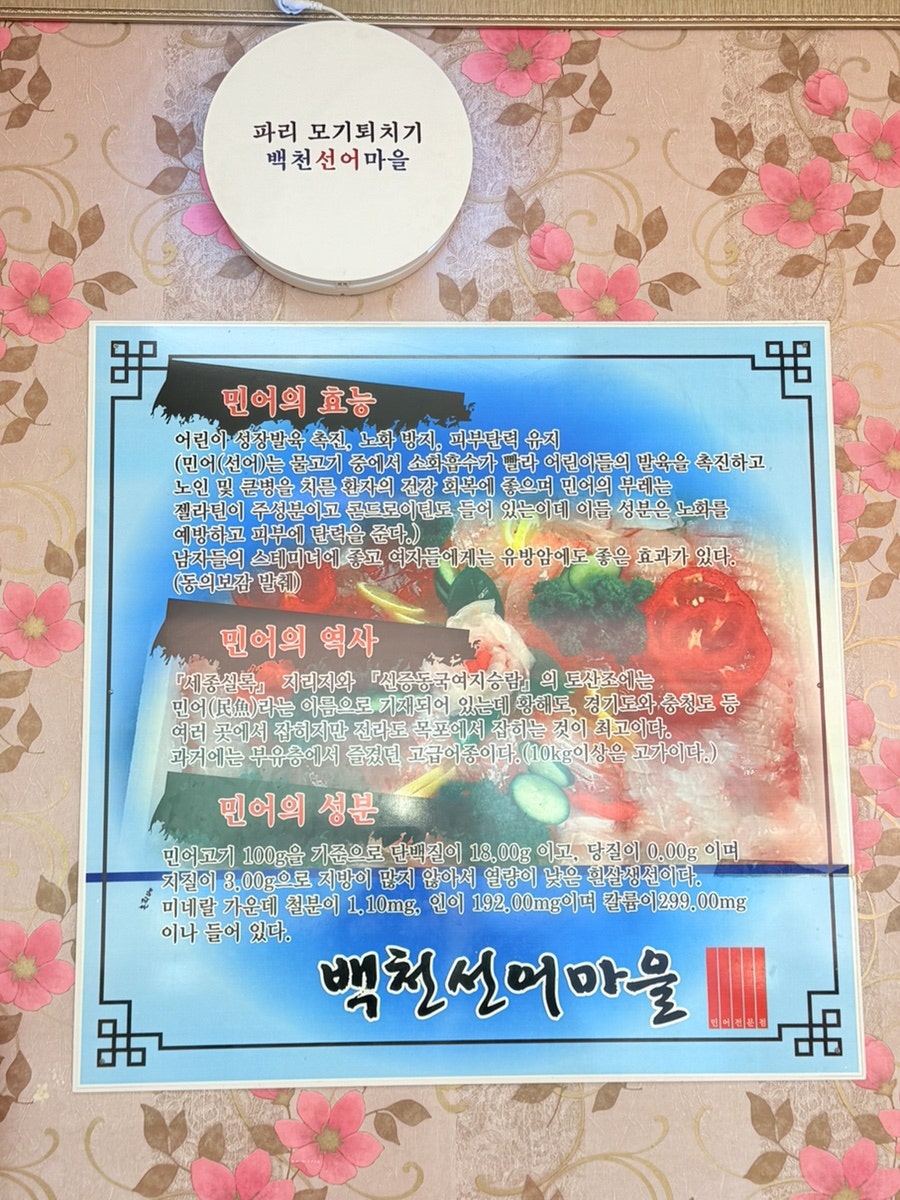 파리 모기퇴치기
백천선어마을
민어의 효능
어린이 성장발육 촉진, 노화 방지, 피부탄력 유지
(민어(선어)는 물고기 중에서 소화흡수가 빨라 어린이들의 발육을 촉진하고
노인 및 큰병을 치른 환자의 건강 회복에 좋으며 민어의 부레는
젤라틴이 주성분이고 콘드로이틴도 들어 있는이데 이들 성분은 노화를
예방하고 피부에 탄력을 준다.)
남자들의 스테미너에 좋고 여자들에게는 유방암에도 좋은 효과가 있다.
(동의보감 발췌)
민어의 역사
『세종실록』 지리지와 『신증동국여지승람』의 토산조에는
민어(民魚)라는 이름으로 기재되어 있는데 황해도, 경기도와 충청도 등
여러 곳에서 잡히지만 전라도 목포에서 잡히는 것이 최고이다.
과거에는 부유층에서 즐겼던 고급어종이다.(10kg이상은 고가이다.)
민어의 성분
민어고기 100g을 기준으로 단백질이 18.00g 이고, 당질이 0.00g 이며
지질이 3.00g으로 지방이 많지 않아서 열량이 낮은 흰살생선이다.
미네랄 가운데 철분이 1.10mg, 인이 192.00mg이며 칼륨이299.00mg
이나 들어 있다.
백천선어마을
민어전문점